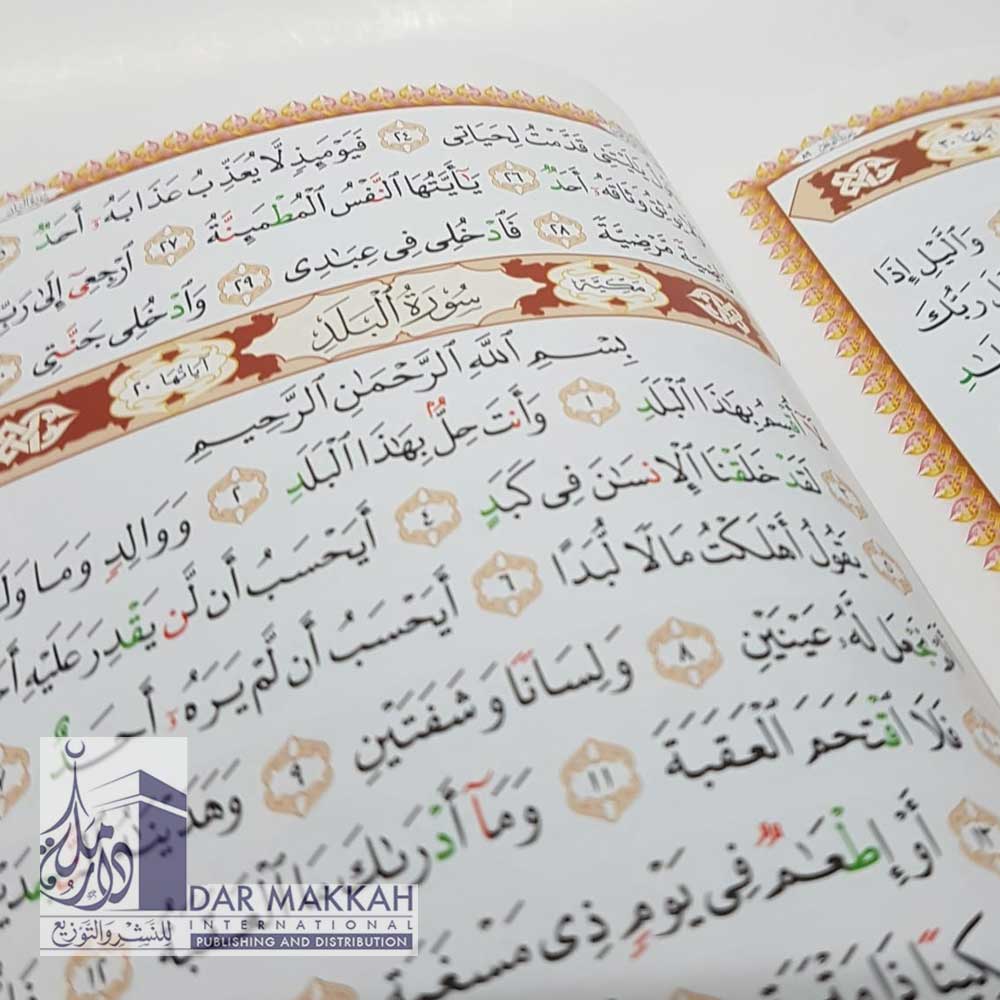 قَدَّمْتُ لِحَيَاتِى ٢٤ فَيَوْمَئِذٍ لَّا يُعَذِّبُ عَذَابَهُۥٓ أَحَدٌ
وَثَاقَهُۥٓ أَحَدٌ ٢٦ يَـٰٓأَيَّتُهَا ٱلنَّفْسُ ٱلْمُطْمَئِنَّةُ ٢٧ ٱرْجِعِىٓ إِلَىٰ
مَّرْضِيَّةً ٢٨ فَٱدْخُلِى فِى عِبَـٰدِى ٢٩ وَٱدْخُلِى جَنَّتِى
مكية سُورَةُ الْبَلَدِ آياتها ٢٠
بِسْمِ ٱللَّهِ ٱلرَّحْمَـٰنِ ٱلرَّحِيمِ
لَآ أُقْسِمُ بِهَـٰذَا ٱلْبَلَدِ ١ وَأَنتَ حِلٌّۢ بِهَـٰذَا ٱلْبَلَدِ ٢ وَوَالِدٍ وَمَا
لَقَدْ خَلَقْنَا ٱلْإِنسَـٰنَ فِى كَبَدٍ ٤ أَيَحْسَبُ أَن لَّن يَقْدِرَ عَلَيْهِ
٥ يَقُولُ أَهْلَكْتُ مَالًا لُّبَدًا ٦ أَيَحْسَبُ أَن لَّمْ يَرَهُۥٓ أَحَدٌ ٧
نَجْعَل لَّهُۥ عَيْنَيْنِ ٨ وَلِسَانًا وَشَفَتَيْنِ ٩
فَلَا ٱقْتَحَمَ ٱلْعَقَبَةَ ١١ وَمَآ أَدْرَىٰكَ مَا ٱلْعَقَبَةُ ١٢
١٣ أَوْ إِطْعَـٰمٌ فِى يَوْمٍ ذِى مَسْغَبَةٍ
وَٱلَّيْلِ إِذَا
رَبُّكَ
دار مكة
للنشر والتوزيع
DAR MAKKAH
INTERNATIONAL
PUBLISHING AND DISTRIBUTION